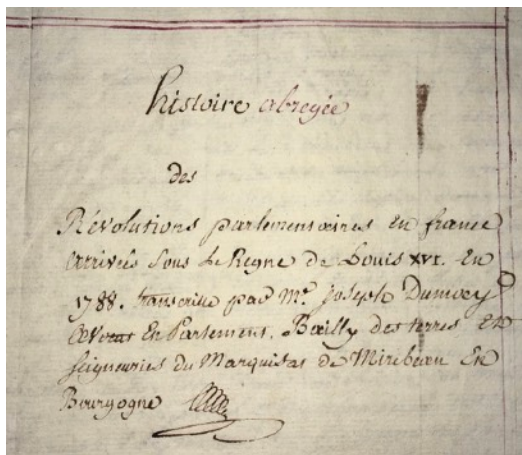 histoire abregée
des
Révolutions parlementaires en france
arrivées sous Le Regne de Louis XVI. En
1788. transcritte par Mr. joseph Dumoey
avocat En Parlement, Bailly des terres Et
seigneuries du Marquisat de Mirebeau En
Bourgogne